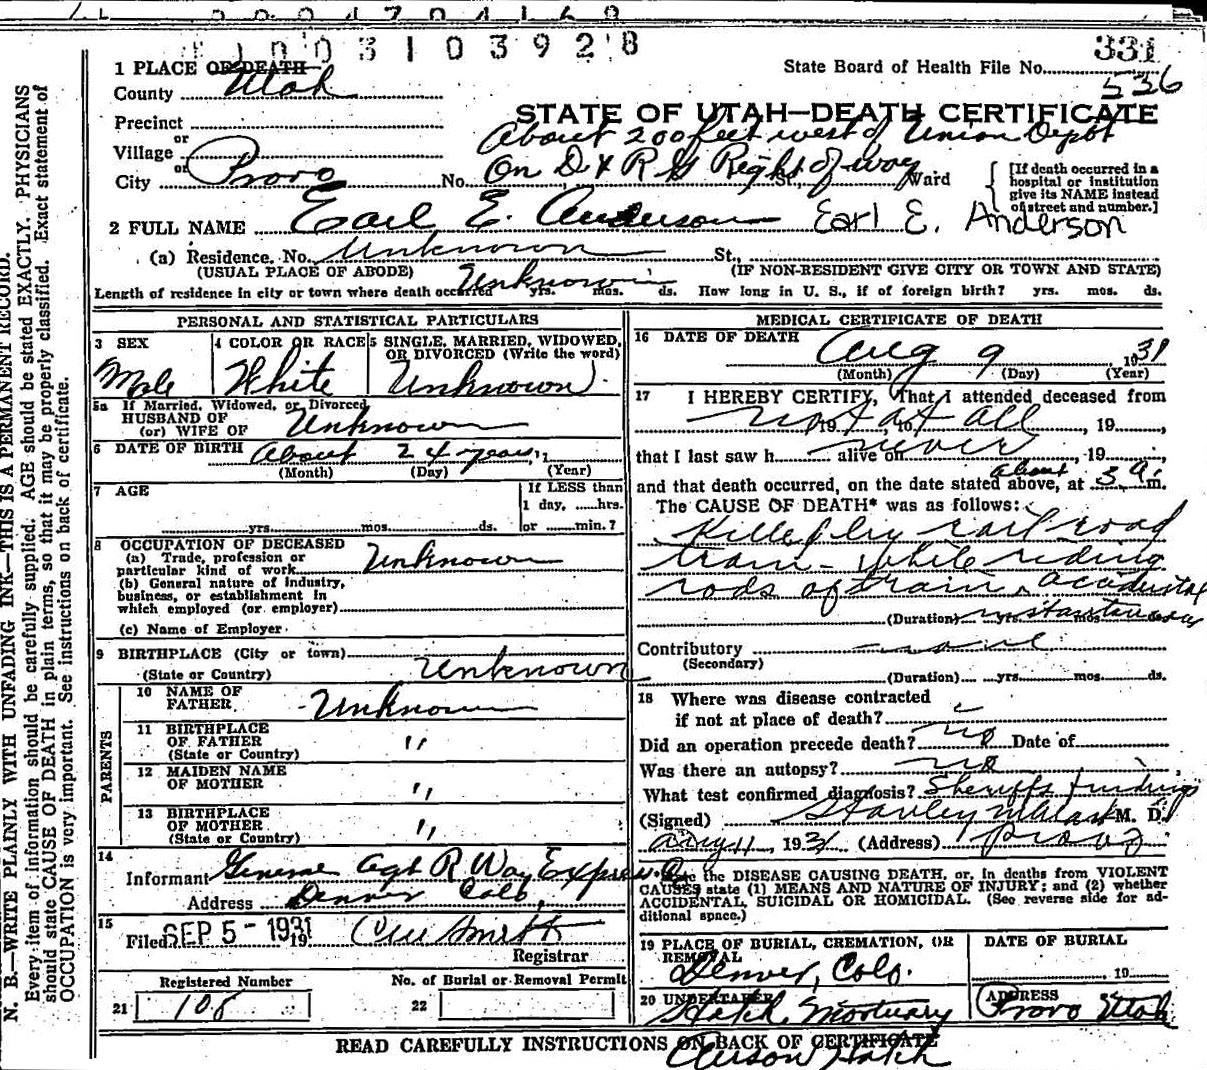 1003103928
331
1 PLACE OF DEATH
State Board of Health File No.
536
County Utah
STATE OF UTAH—DEATH CERTIFICATE
Precinct
About 200 feet west of Union Depot
or
Village
or
City Provo No. On D & R G Right of way St., Ward
[If death occurred in a hospital or institution give its NAME instead of street and number.]
2 FULL NAME Earl E. Anderson Earl E. Anderson
(a) Residence. No. Unknown St.,
(USUAL PLACE OF ABODE) (IF NON-RESIDENT GIVE CITY OR TOWN AND STATE)
Length of residence in city or town where death occurred Unknown yrs. mos. ds. How long in U. S., if of foreign birth? yrs. mos. ds.
PERSONAL AND STATISTICAL PARTICULARS
3 SEX Male
4 COLOR OR RACE White
5 SINGLE, MARRIED, WIDOWED, OR DIVORCED (Write the word) Unknown
5a If Married, Widowed, or Divorced
HUSBAND OF
(or) WIFE OF Unknown
6 DATE OF BIRTH About 24 years
(Month) (Day) (Year)
7 AGE
yrs. mos. ds.
If LESS than
1 day, ......hrs.
or ......min.?
8 OCCUPATION OF DECEASED
(a) Trade, profession or
particular kind of work Unknown
(b) General nature of industry,
business, or establishment in
which employed (or employer)
(c) Name of Employer
9 BIRTHPLACE (City or town)
(State or Country) Unknown
PARENTS
10 NAME OF
FATHER Unknown
11 BIRTHPLACE
OF FATHER "
(State or Country)
12 MAIDEN NAME
OF MOTHER "
13 BIRTHPLACE
OF MOTHER "
(State or Country)
14
Informant General Agt R Way Express Co
Address Denver Colo,
15
Filed SEP 5 - 1931 19
Registrar
Registered Number
21 108
No. of Burial or Removal Permit
22
MEDICAL CERTIFICATE OF DEATH
16 DATE OF DEATH Aug 9 1931
(Month) (Day) (Year)
17 I HEREBY CERTIFY, That I attended deceased from
not at all, 19 to, 19
that I last saw h alive on never, 19
about
and that death occurred, on the date stated above, at 3 a.m.
The CAUSE OF DEATH* was as follows:
Killed by rail road
train - while riding
rods of train. accidental
(Duration) yrs. mos. instantaneous
Contributory none
(Secondary)
(Duration) yrs. mos. ds.
18 Where was disease contracted
if not at place of death?
Did an operation precede death? no Date of
Was there an autopsy? no
What test confirmed diagnosis? Sheriffs findings
(Signed) Stanley M Clark M. D.
Aug 11, 1931 (Address) Provo
*State the DISEASE CAUSING DEATH, or, in deaths from VIOLENT
CAUSES state (1) MEANS AND NATURE OF INJURY; and (2) whether
ACCIDENTAL, SUICIDAL OR HOMICIDAL. (See reverse side for ad-
ditional space.)
19 PLACE OF BURIAL, CREMATION, OR
REMOVAL
Denver, Colo.
DATE OF BURIAL
, 19
20 UNDERTAKER
Hatch Mortuary
ADDRESS
Provo Utah
READ CAREFULLY INSTRUCTIONS ON BACK OF CERTIFICATE
Hatch
N. B.—WRITE PLAINLY WITH UNFADING INK—THIS IS A PERMANENT RECORD.
Every item of information should be carefully supplied. AGE should be stated EXACTLY. PHYSICIANS
should state CAUSE OF DEATH in plain terms, so that it may be properly classified. Exact statement of
OCCUPATION is very important. See instructions on back of certificate.